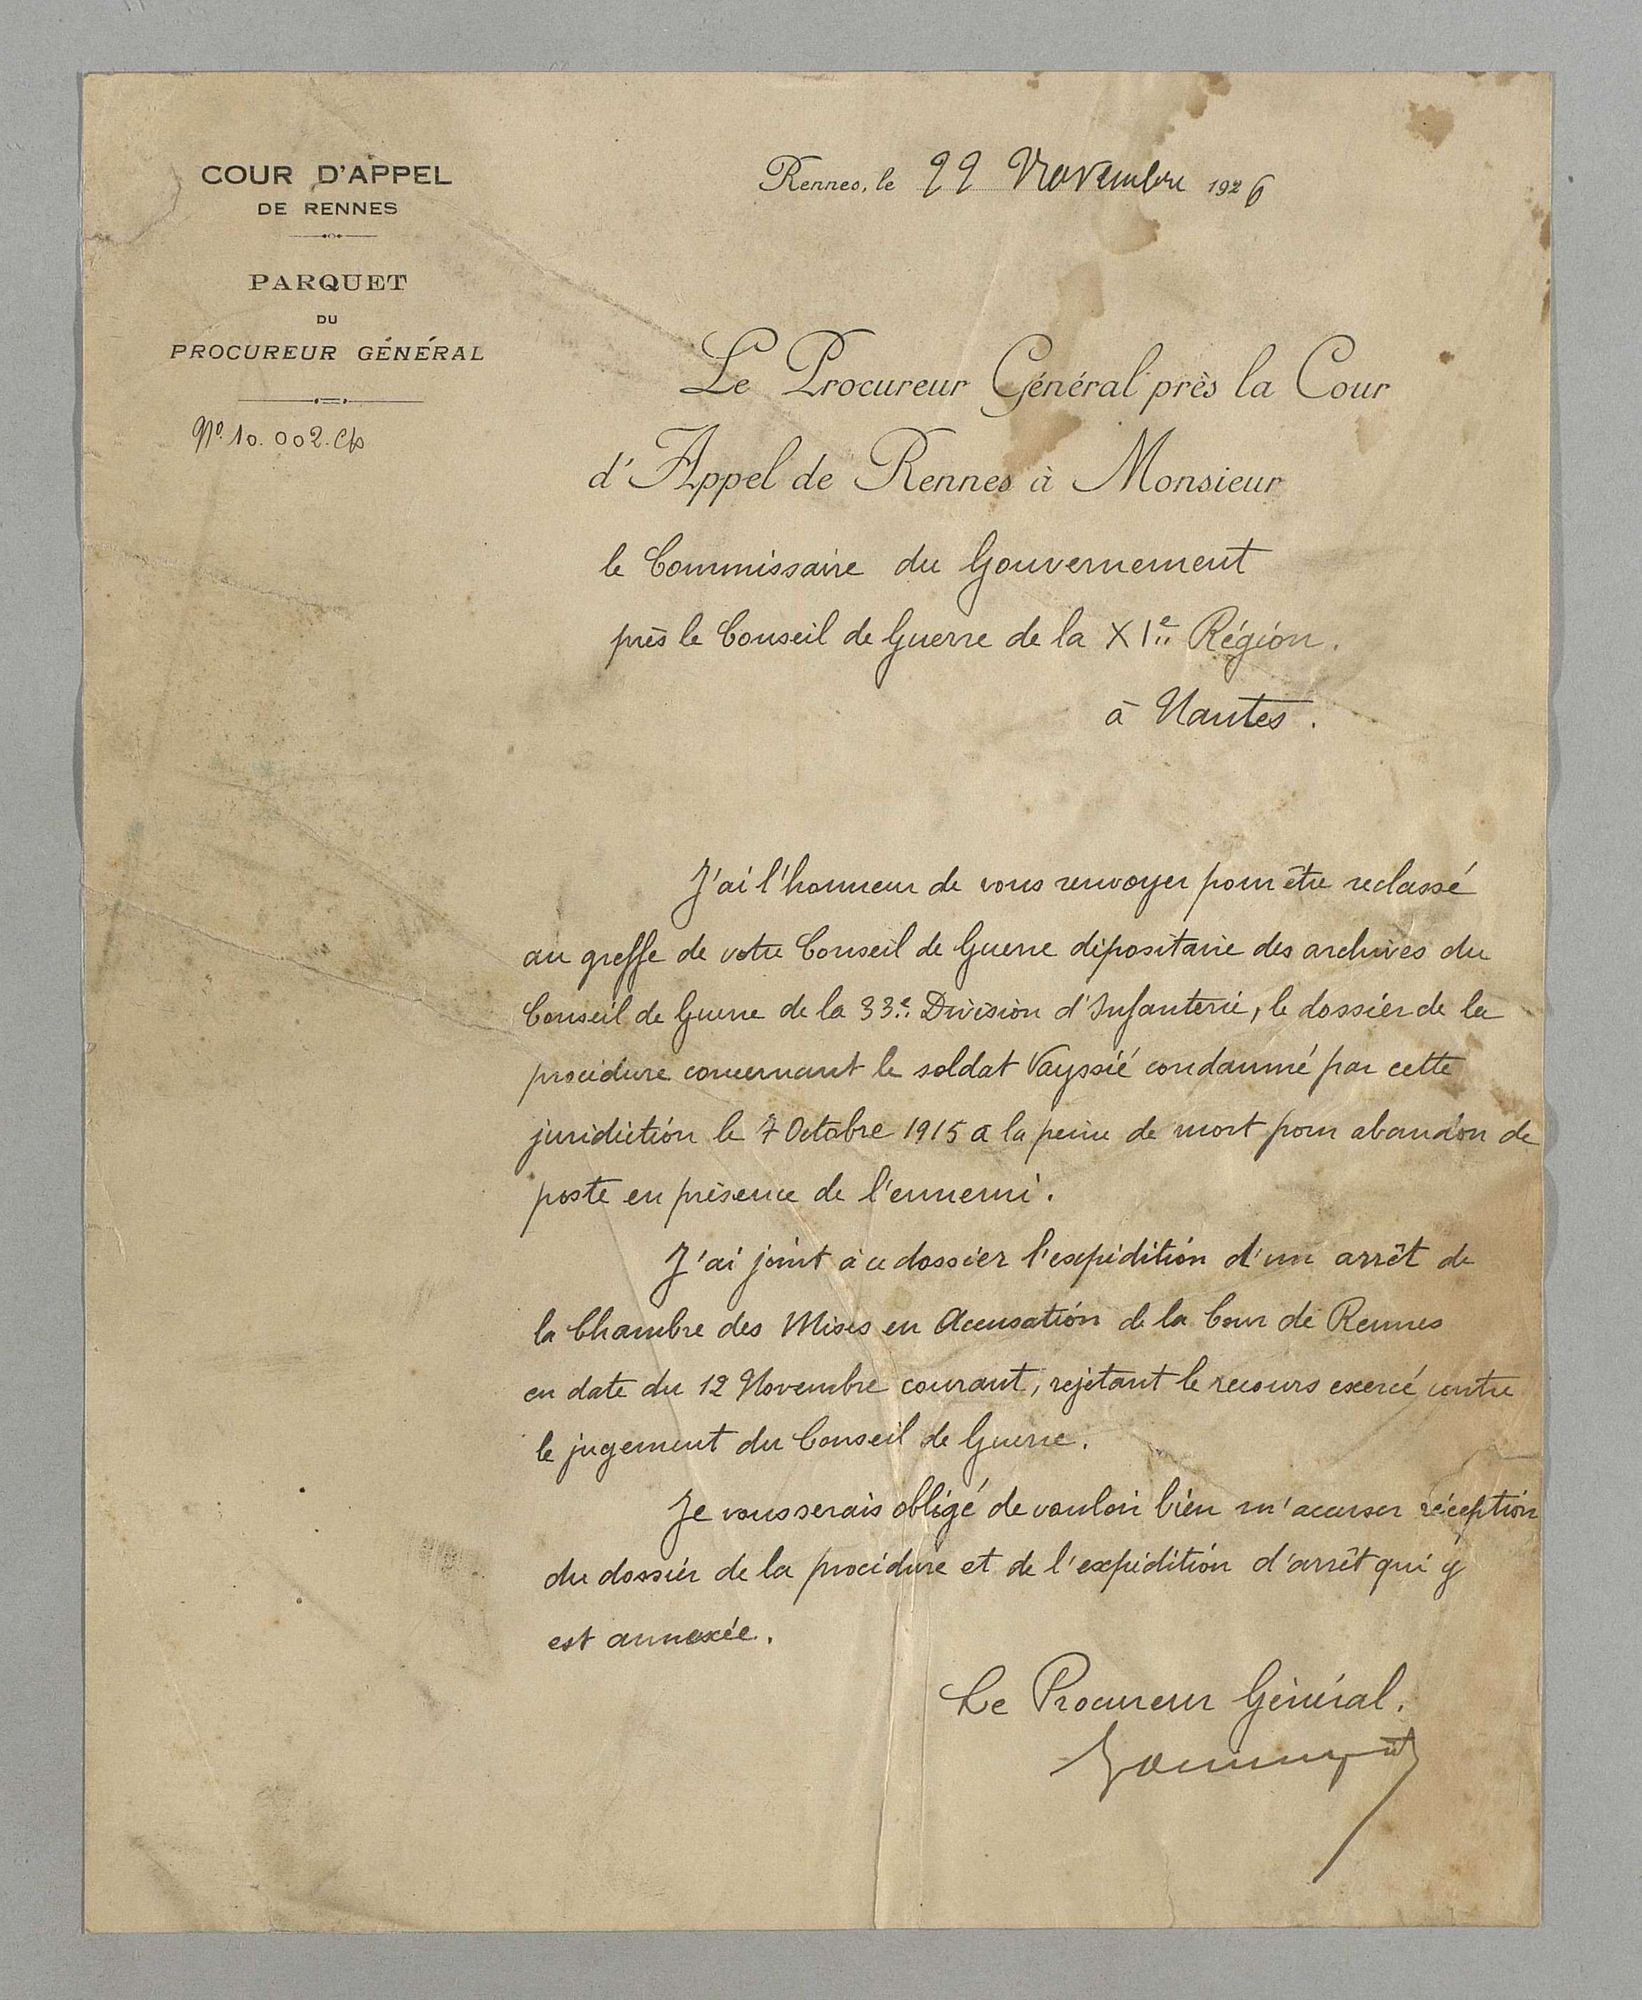 COUR D'APPEL
DE RENNES
PARQUET
DU
PROCUREUR GÉNÉRAL
Nº 10.002.
Rennes, le 22 Novembre 1926
Le Procureur Général près la Cour
d'Appel de Rennes à Monsieur
le Commissaire du Gouvernement
près le Conseil de Guerre de la XIe Région.
à Nantes.
J'ai l'honneur de vous renvoyer pour être reclassé
au greffe de votre Conseil de Guerre dépositaire des archives du
Conseil de Guerre de la 33e Division d'Infanterie, le dossier de la
procédure concernant le soldat Vayssié condamné par cette
juridiction le 7 Octobre 1915 a la peine de mort pour abandon de
poste en présence de l'ennemi.
J'ai joint à ce dossier l'expédition d'un arrêt de
la Chambre des Mises en Accusation de la Cour de Rennes
en date du 12 Novembre courant, rejetant le recours exercé contre
le jugement du Conseil de Guerre.
Je vous serais obligé de vouloir bien m'accuser réception
du dossier de la procédure et de l'expédition d'arrêt qui y
est annexée.
Le Procureur Général.